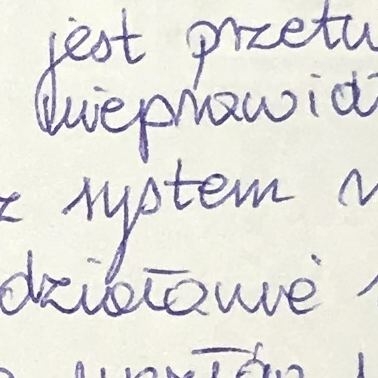 jest przetw
nieprawidł
z system
działanie